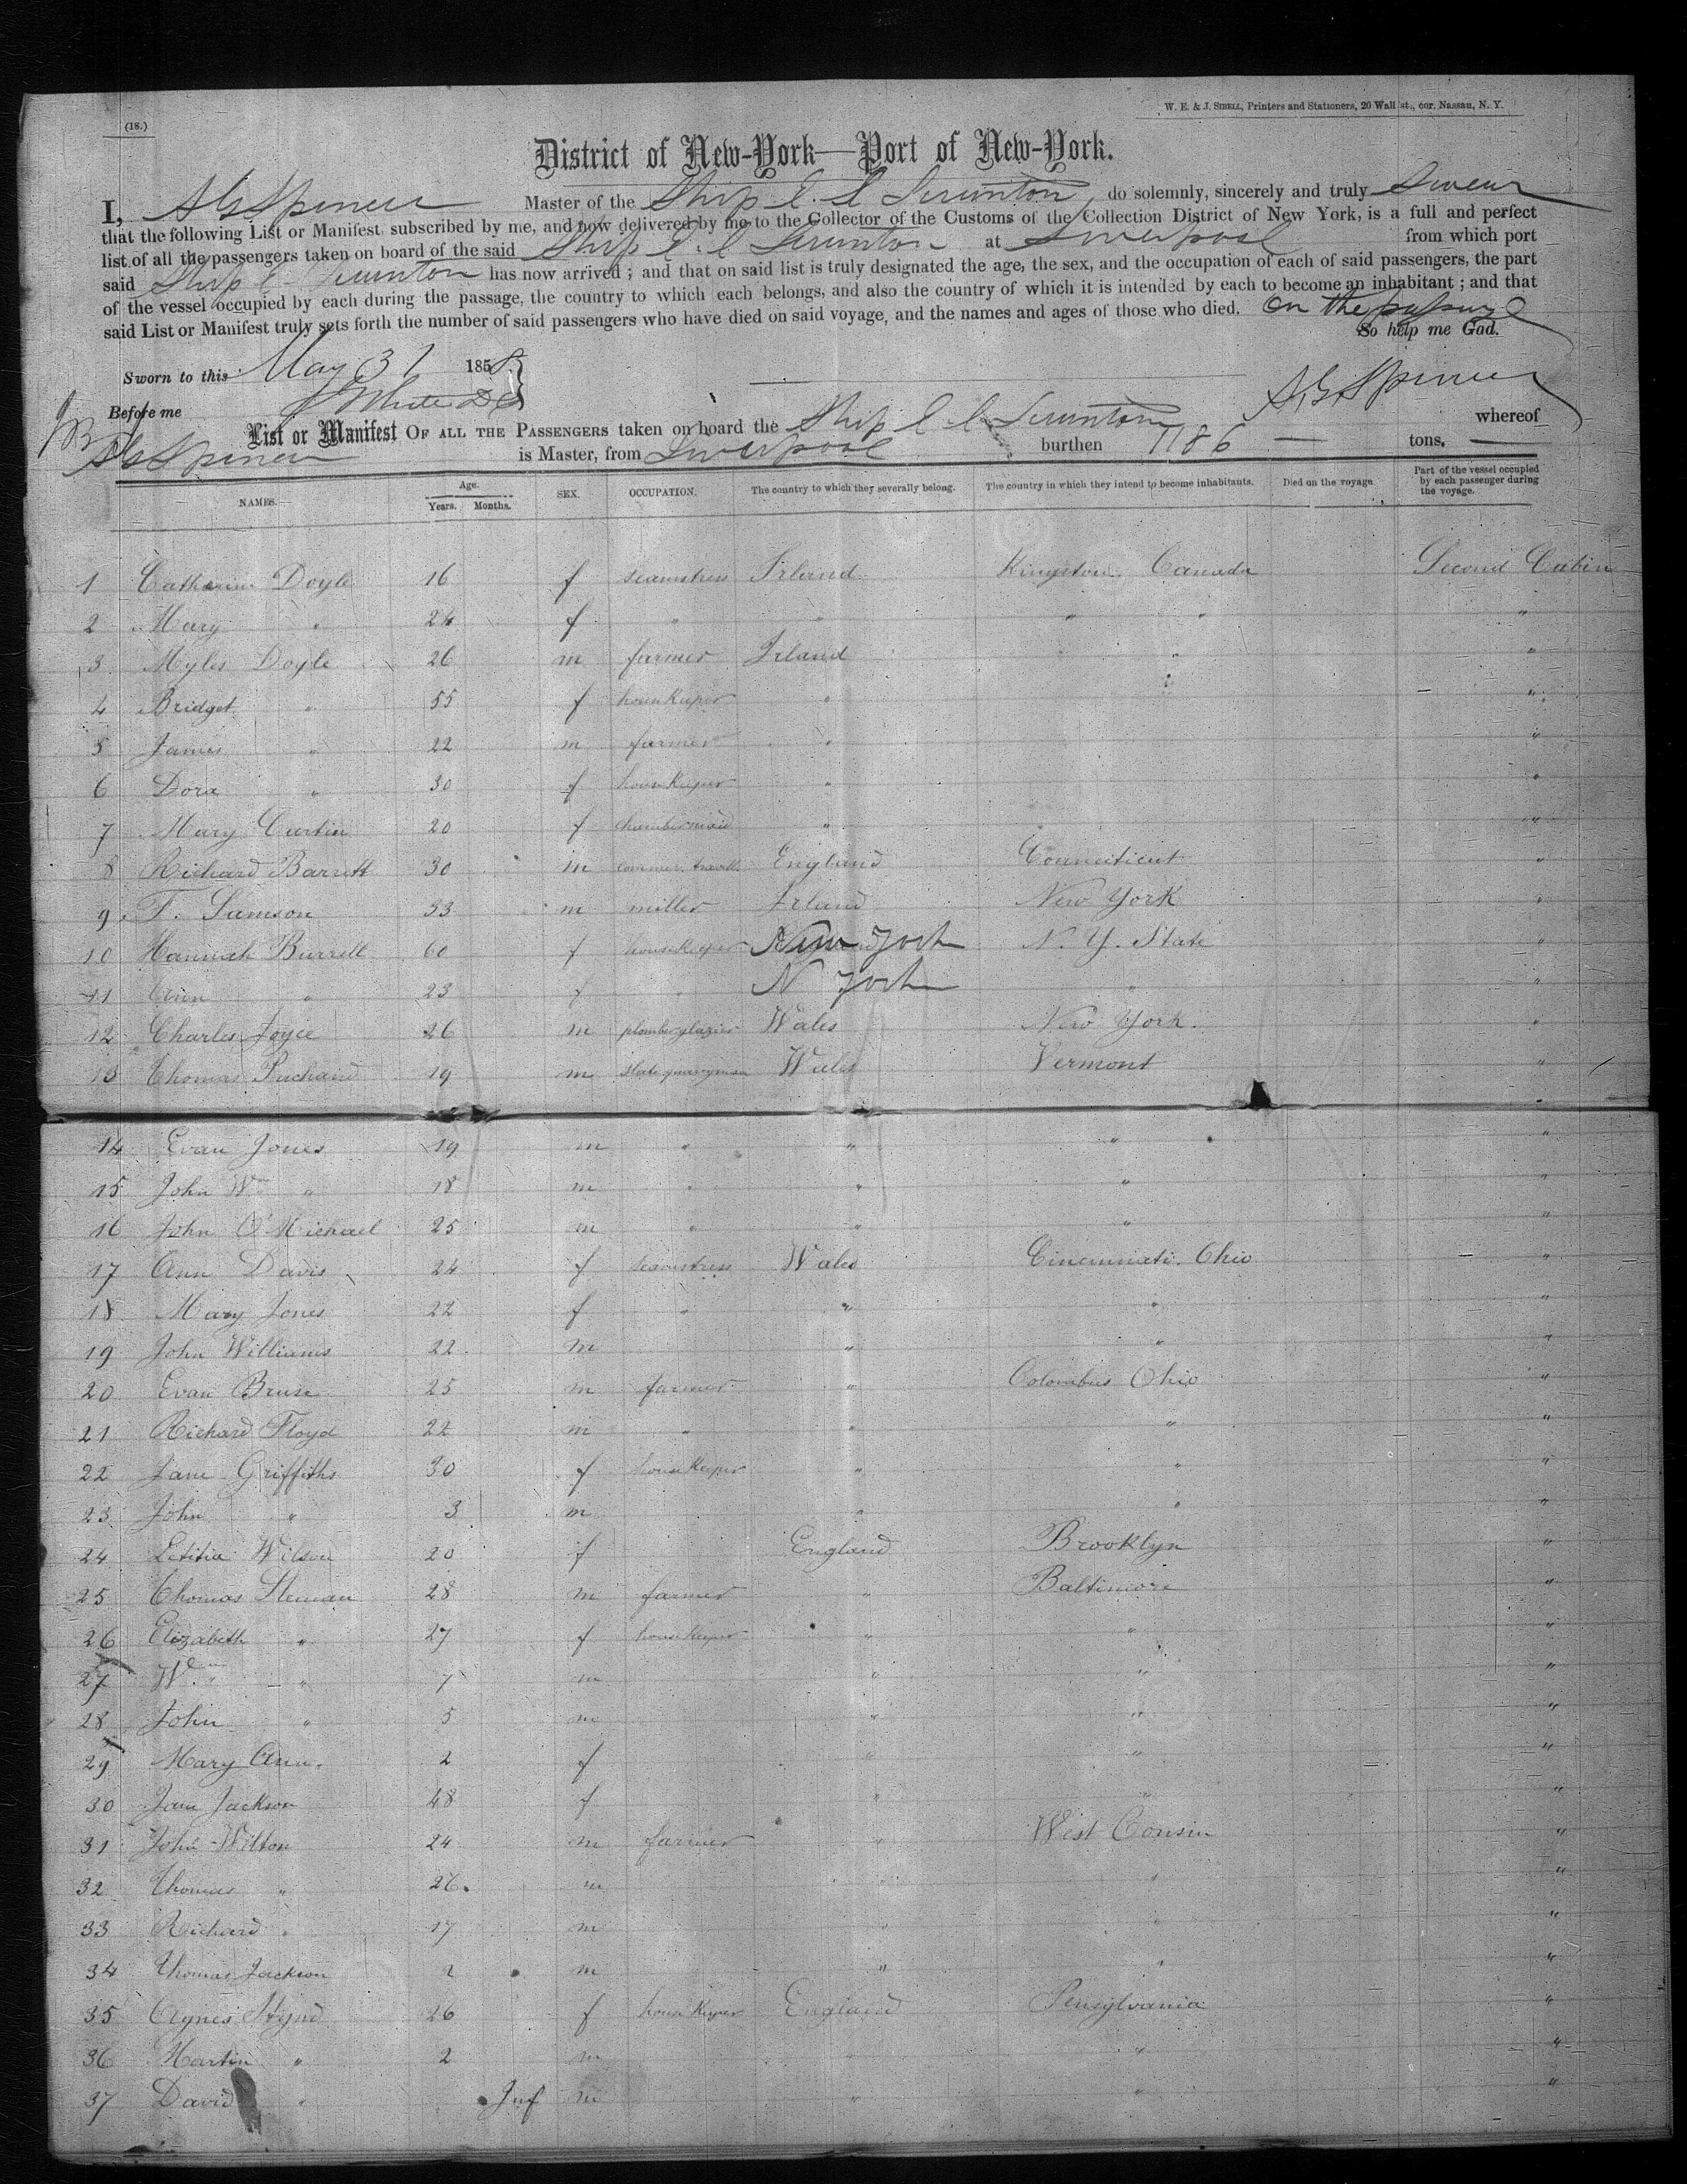 (18.)
W. E. & J. SIBELL, Printers and Stationers, 20 Wall st., cor. Nassau, N. Y.
District of New-York—Port of New-York.
I, Master of the Ship E. C Scranton, do solemnly, sincerely and truly Swear
that the following List or Manifest, subscribed by me, and now delivered by me to the Collector of the Customs of the Collection District of New York, is a full and perfect
list of all the passengers taken on board of the said Ship E. C Scranton at Liverpool from which port
said Ship E Scranton has now arrived ; and that on said list is truly designated the age, the sex, and the occupation of each of said passengers, the part
of the vessel occupied by each during the passage, the country to which each belongs, and also the country of which it is intended by each to become an inhabitant ; and that
said List or Manifest truly sets forth the number of said passengers who have died on said voyage, and the names and ages of those who died. on the passage
So help me God.
Sworn to this May 31 1858
Before me
List or Manifest OF ALL THE PASSENGERS taken on board the Ship E C Scranton whereof
is Master, from Liverpool burthen 1186 tons,
NAMES. Age. Years. Months. SEX. OCCUPATION. The country to which they severally belong. The country in which they intend to become inhabitants. Died on the voyage Part of the vessel occupied by each passenger during the voyage.
1 Catharine Doyle 16 f seamstress Irland Kingston Canada Second Cabin
2 Mary " 24 f " " " " "
3 Myles Doyle 26 m farmer Irland " "
4 Bridget " 55 f houseKeeper " " "
5 James " 22 m farmer " "
6 Dora " 30 f houseKeeper " "
7 Mary Curtin 20 f chambermaid " "
8 Richard Barrett 30 m England Connecticut "
9 F. Samson 33 m miller Irland New York "
10 Hannah Burrell 60 f houseKeeper New York N. Y. State "
11 Ann " 23 f " N York " "
12 Charles Joyce 26 m plomber glazier Wales New York "
13 Thomas 19 m slate quarryman Wales Vermont "
14 Evan Jones 19 m " " " "
15 John Wm " 18 m " " " "
16 John O'Michael 25 m " " " "
17 Ann Davis 24 f seamstress Wales Cincinnati. Ohio "
18 Mary Jones 22 f " " " "
19 John Williams 22 m " " "
20 Evan 25 m farmer " Colombus Ohio "
21 Richard Floyd 22 m " " " "
22 Jane Griffiths 30 f houseKeeper " " "
23 John " 3 m " " "
24 Letitia Wilson 20 f England Brooklyn "
25 Thomas 28 m farmer " Baltimore "
26 Elizabeth " 27 f houseKeeper " " "
27 Wm " 7 m " " "
28 John " 5 m " " "
29 Mary Ann. 2 f " " "
30 Jane Jackson 48 f " " "
31 John Wilton 24 m farmer " West Consin "
32 Thomas " 26 m " " "
33 Richard " 17 m " " "
34 Thomas Jackson 2 m " " "
35 Agnes Hynd 26 f houseKeeper England Pensylvania "
36 Martin " 2 m " " "
37 David " Inf m " " "